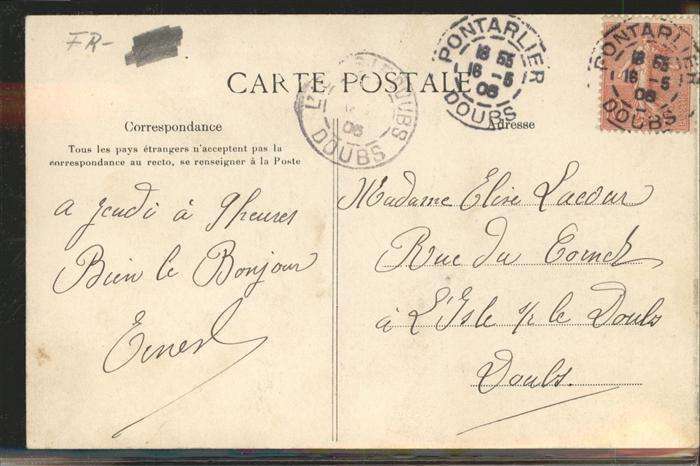 FR-
CARTE POSTALE
PONTARLIER
18 55
16 - 5
06
DOUBS
PONTARLIER
18 55
16 - 5
06
DOUBS
DOUBS
06
DOUBS
Correspondance
Tous les pays étrangers n'acceptent pas la
correspondance au recto, se renseigner à la Poste
a Jeudi à 9 heures
Bien le Bonjour
Ernest
Adresse
Madame Elise Lacour
Rue du
à L'Isle s/ le Doubs
Doubs.